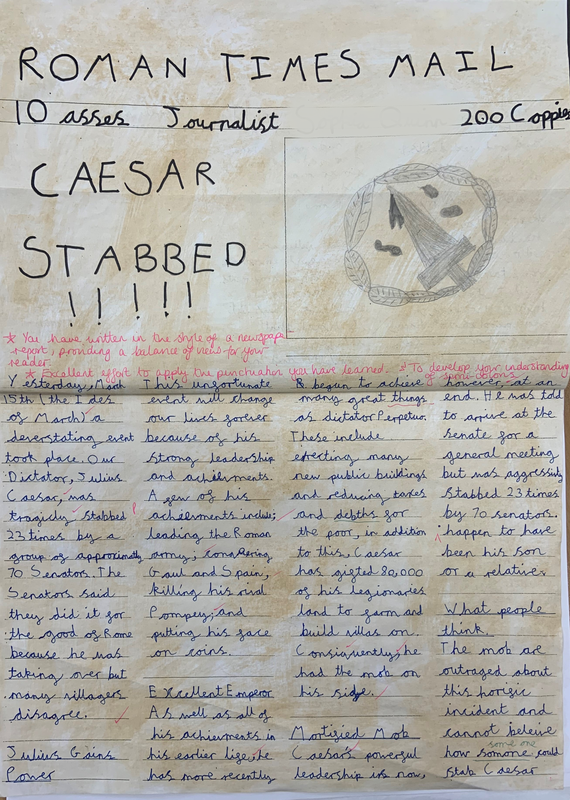 ROMAN TIMES MAIL
10 asses Journalist 200 Coppies
CAESAR
STABBED
!!!!!
* You have written in the style of a newspaper
report, providing a balance of views for your
reader.
* Excellent effort to apply the punctuation you have learned. * To develop your understanding
of semi colons.
Yesterday, March
15th (the Ides
of March) a
deverstating event
took place. Our
Dictator, Julius
Caesar, was
tragicly stabbed
23 times by a
group of approximatly
70 Senators. The
Senators said
they did it for
the good of Rome
because he was
taking over but
many villagers
disagree.
Julius Gains
Power
This unfortunate
event will change
our lives forever
because of his
strong leadership
and achievments.
A few of his
acheivments include;
leading the Roman
army; conquering
Gaul and Spain,
killing his rival
Pompey; and
putting his face
on coins.
Excellent Emperor
As well as all of
his achievments in
his earlier life, he
has more recently
& begun to achieve
many great things
as dictator Perpetuo.
These include
erecting many
new public buildings
and reducing taxes
and debths for
the poor, in addition
to this, Caesar
has gifted 80,000
of his legionaries
land to farm and
build villas on.
Consiquently, he
had the mob on
his side.
Mortified Mob
Caesar's powerful
leadership is now,
however, at an
end. He was told
to arrive at the
senate for a
general meeting
but was aggressivly
stabbed 23 times
by 70 senators.
happen to have
been his son
or a relative.
What people
think.
The mob are
outraged about
this horific
incident and
cannot beleive
some one
how somone could
stab Caesar